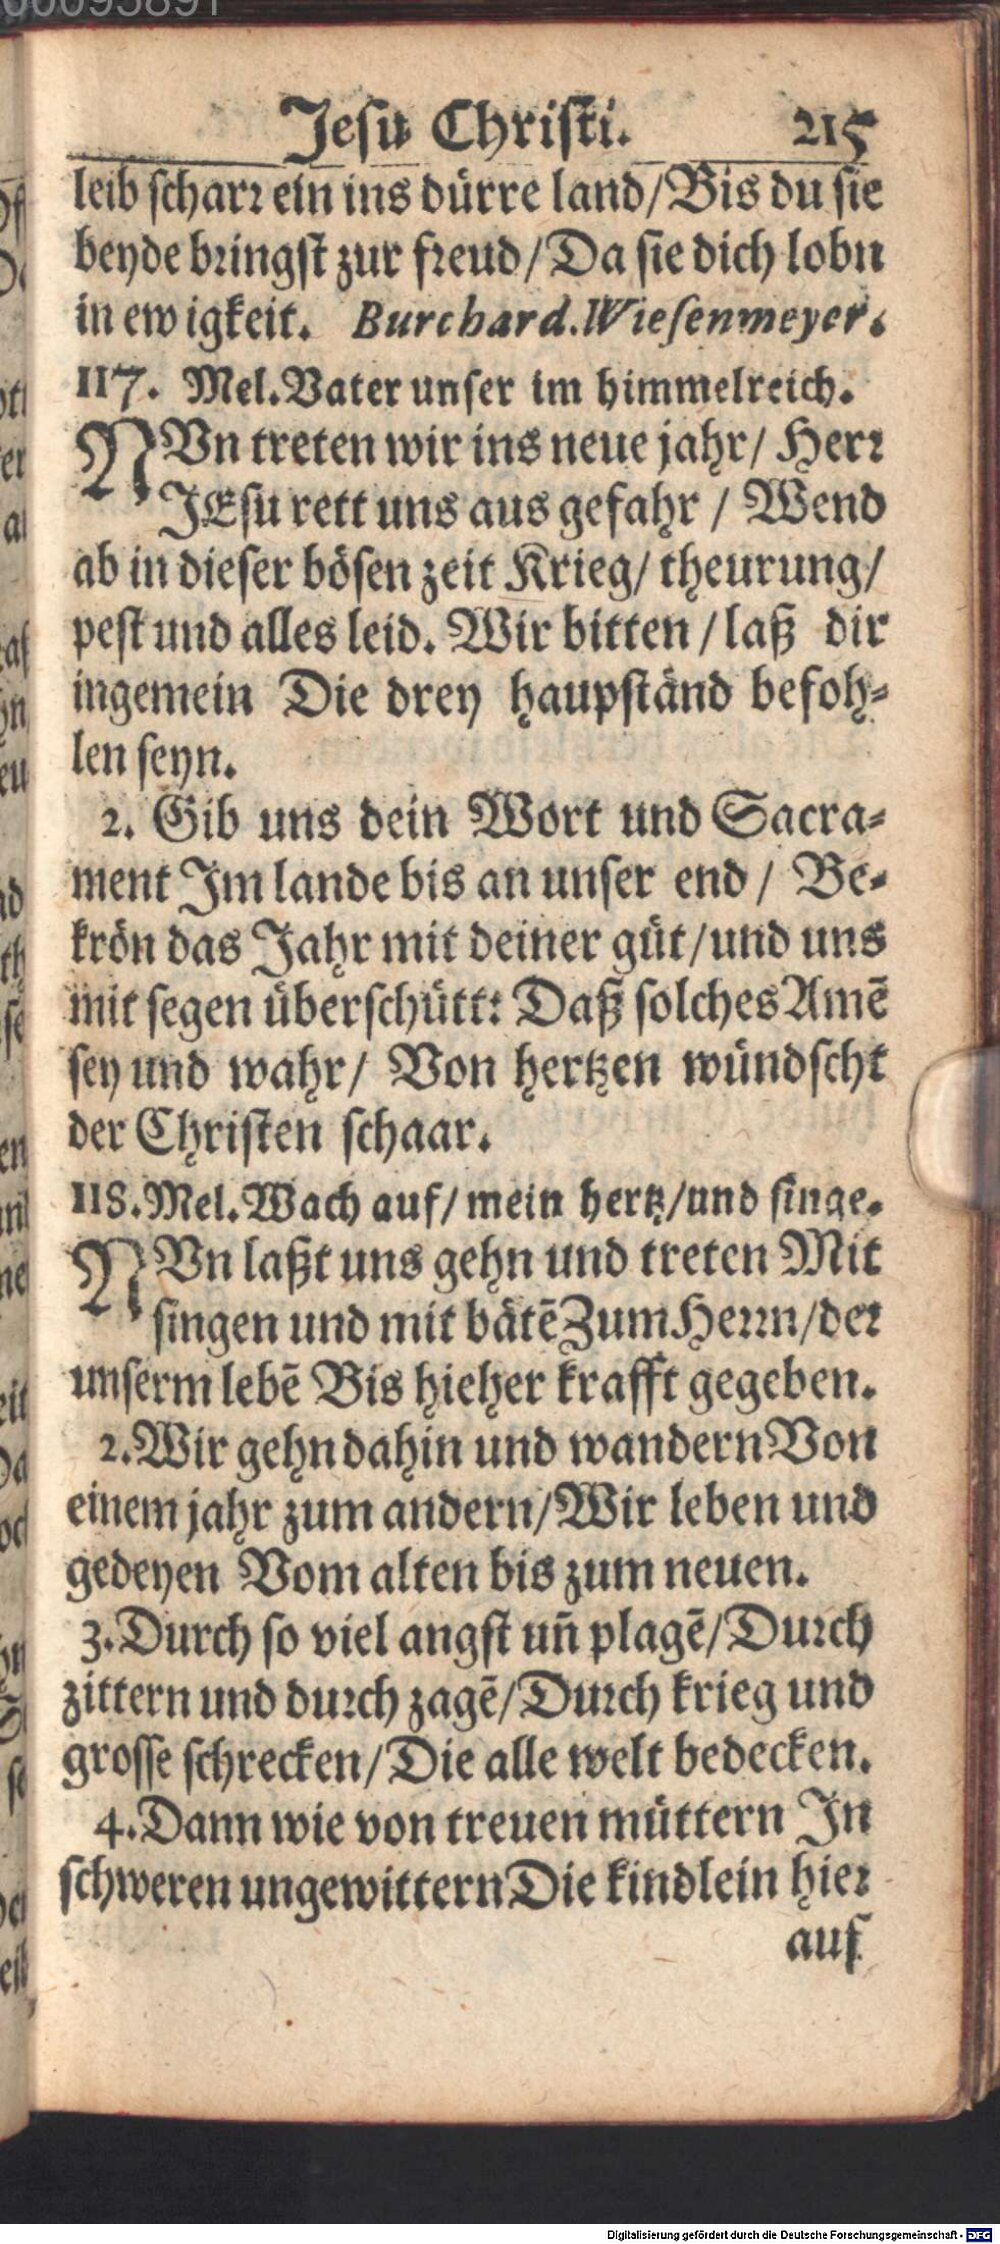 Jeſu Chriſti. 215
leib ſcharꝛ ein ins dürre land/Bis du ſie
beyde bꝛingſt zur fꝛeud/Da ſie dich lobn
in ewigkeit. Burchard.Wieſenmeyer.
117. Mel.Vater unſer im himmelreich.
NVn treten wir ins neue jahr/ Herꝛ
JEſu rett uns aus gefahr / Wend
ab in dieſer böſen zeit Krieg/ theurung/
peſt und alles leid. Wir bitten / laß dir
ingemein Die drey haupſtänd befoh⸗
len ſeyn.
2. Gib uns dein Wort und Sacra⸗
ment Im lande bis an unſer end / Be⸗
krön das Jahr mit deiner güt/und uns
mit ſegen überſchütt: Daß ſolches Amẽ
ſey und wahr/ Von hertzen wündſcht
der Chriſten ſchaar.
118.Mel.Wach auf/mein hertz/und ſinge.
NVn laßt uns gehn und treten Mit
ſingen und mit bätẽ Zum Heꝛꝛn/deꝛ
unſerm lebẽ Bis hieher krafft gegeben.
2.Wir gehn dahin und wandern Von
einem jahr zum andern/Wir leben und
gedeyen Vom alten bis zum neuen.
3.Durch ſo viel angſt uñ plagẽ/Duꝛch
zittern und duꝛch zagẽ/Duꝛch krieg und
groſſe ſchrecken/Die alle welt bedecken.
4.Dann wie von treuen müttern In
ſchweren ungewittern Die kindlein hieꝛ
auf
Digitalisierung gefördert durch die Deutsche Forschungsgemeinschaft - DFG